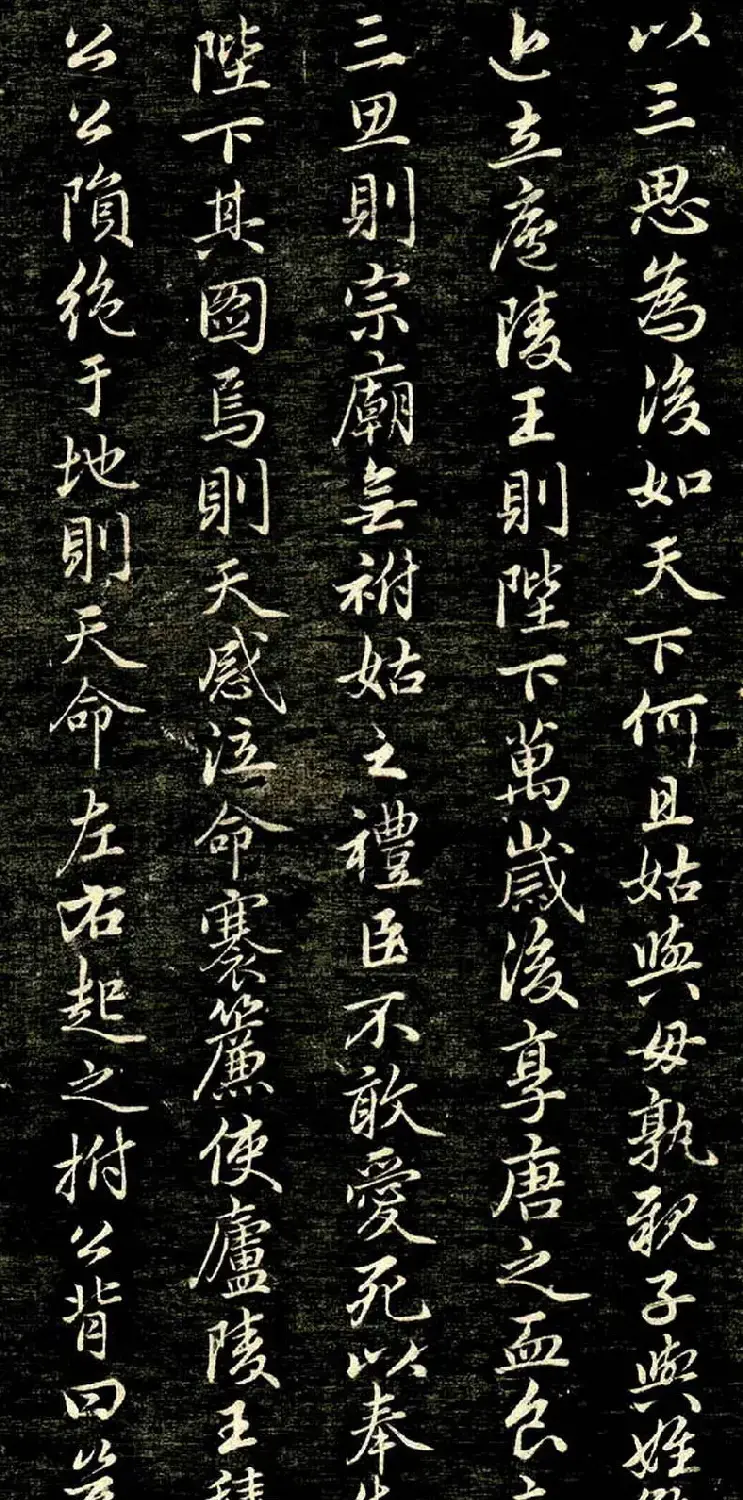 以三思為後如天下何且姑與母孰親子與姪
近立廬陵王則陛下萬歲後享唐之血食立
三思則宗廟無祔姑之禮臣不敢愛死以奉
陛下其圖焉則天感泣命褰簾使廬陵王拜
公公隕絶于地則天命左右起之拊公背曰